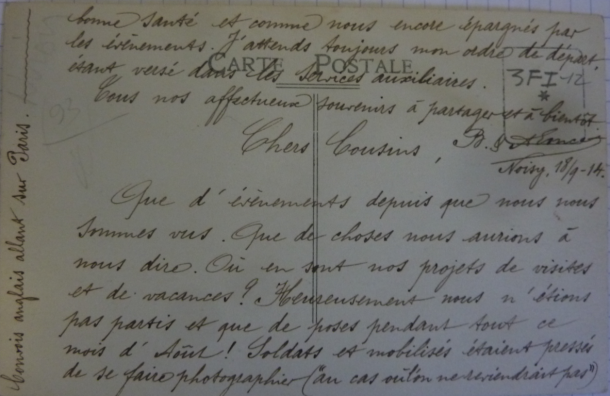 bonne santé et comme nous encore épargnés par
les évènements. J'attends toujours mon ordre de départ,
étant versé dans les services auxiliaires.
CARTE POSTALE
3FI-12
*
93
Tous nos affectueux souvenirs à partager et à bientôt
Chers Cousins,
Noisy, 18/9-14.
Que d'évènements depuis que nous nous
sommes vus. Que de choses nous aurions à
nous dire. Où en sont nos projets de visites
et de vacances? Heureusement nous n'étions
pas partis et que de poses pendant tout ce
mois d'Août! Soldats et mobilisés étaient pressés
de se faire photographier ("au cas où l'on ne reviendrait pas")
Convois anglais allant sur Paris.